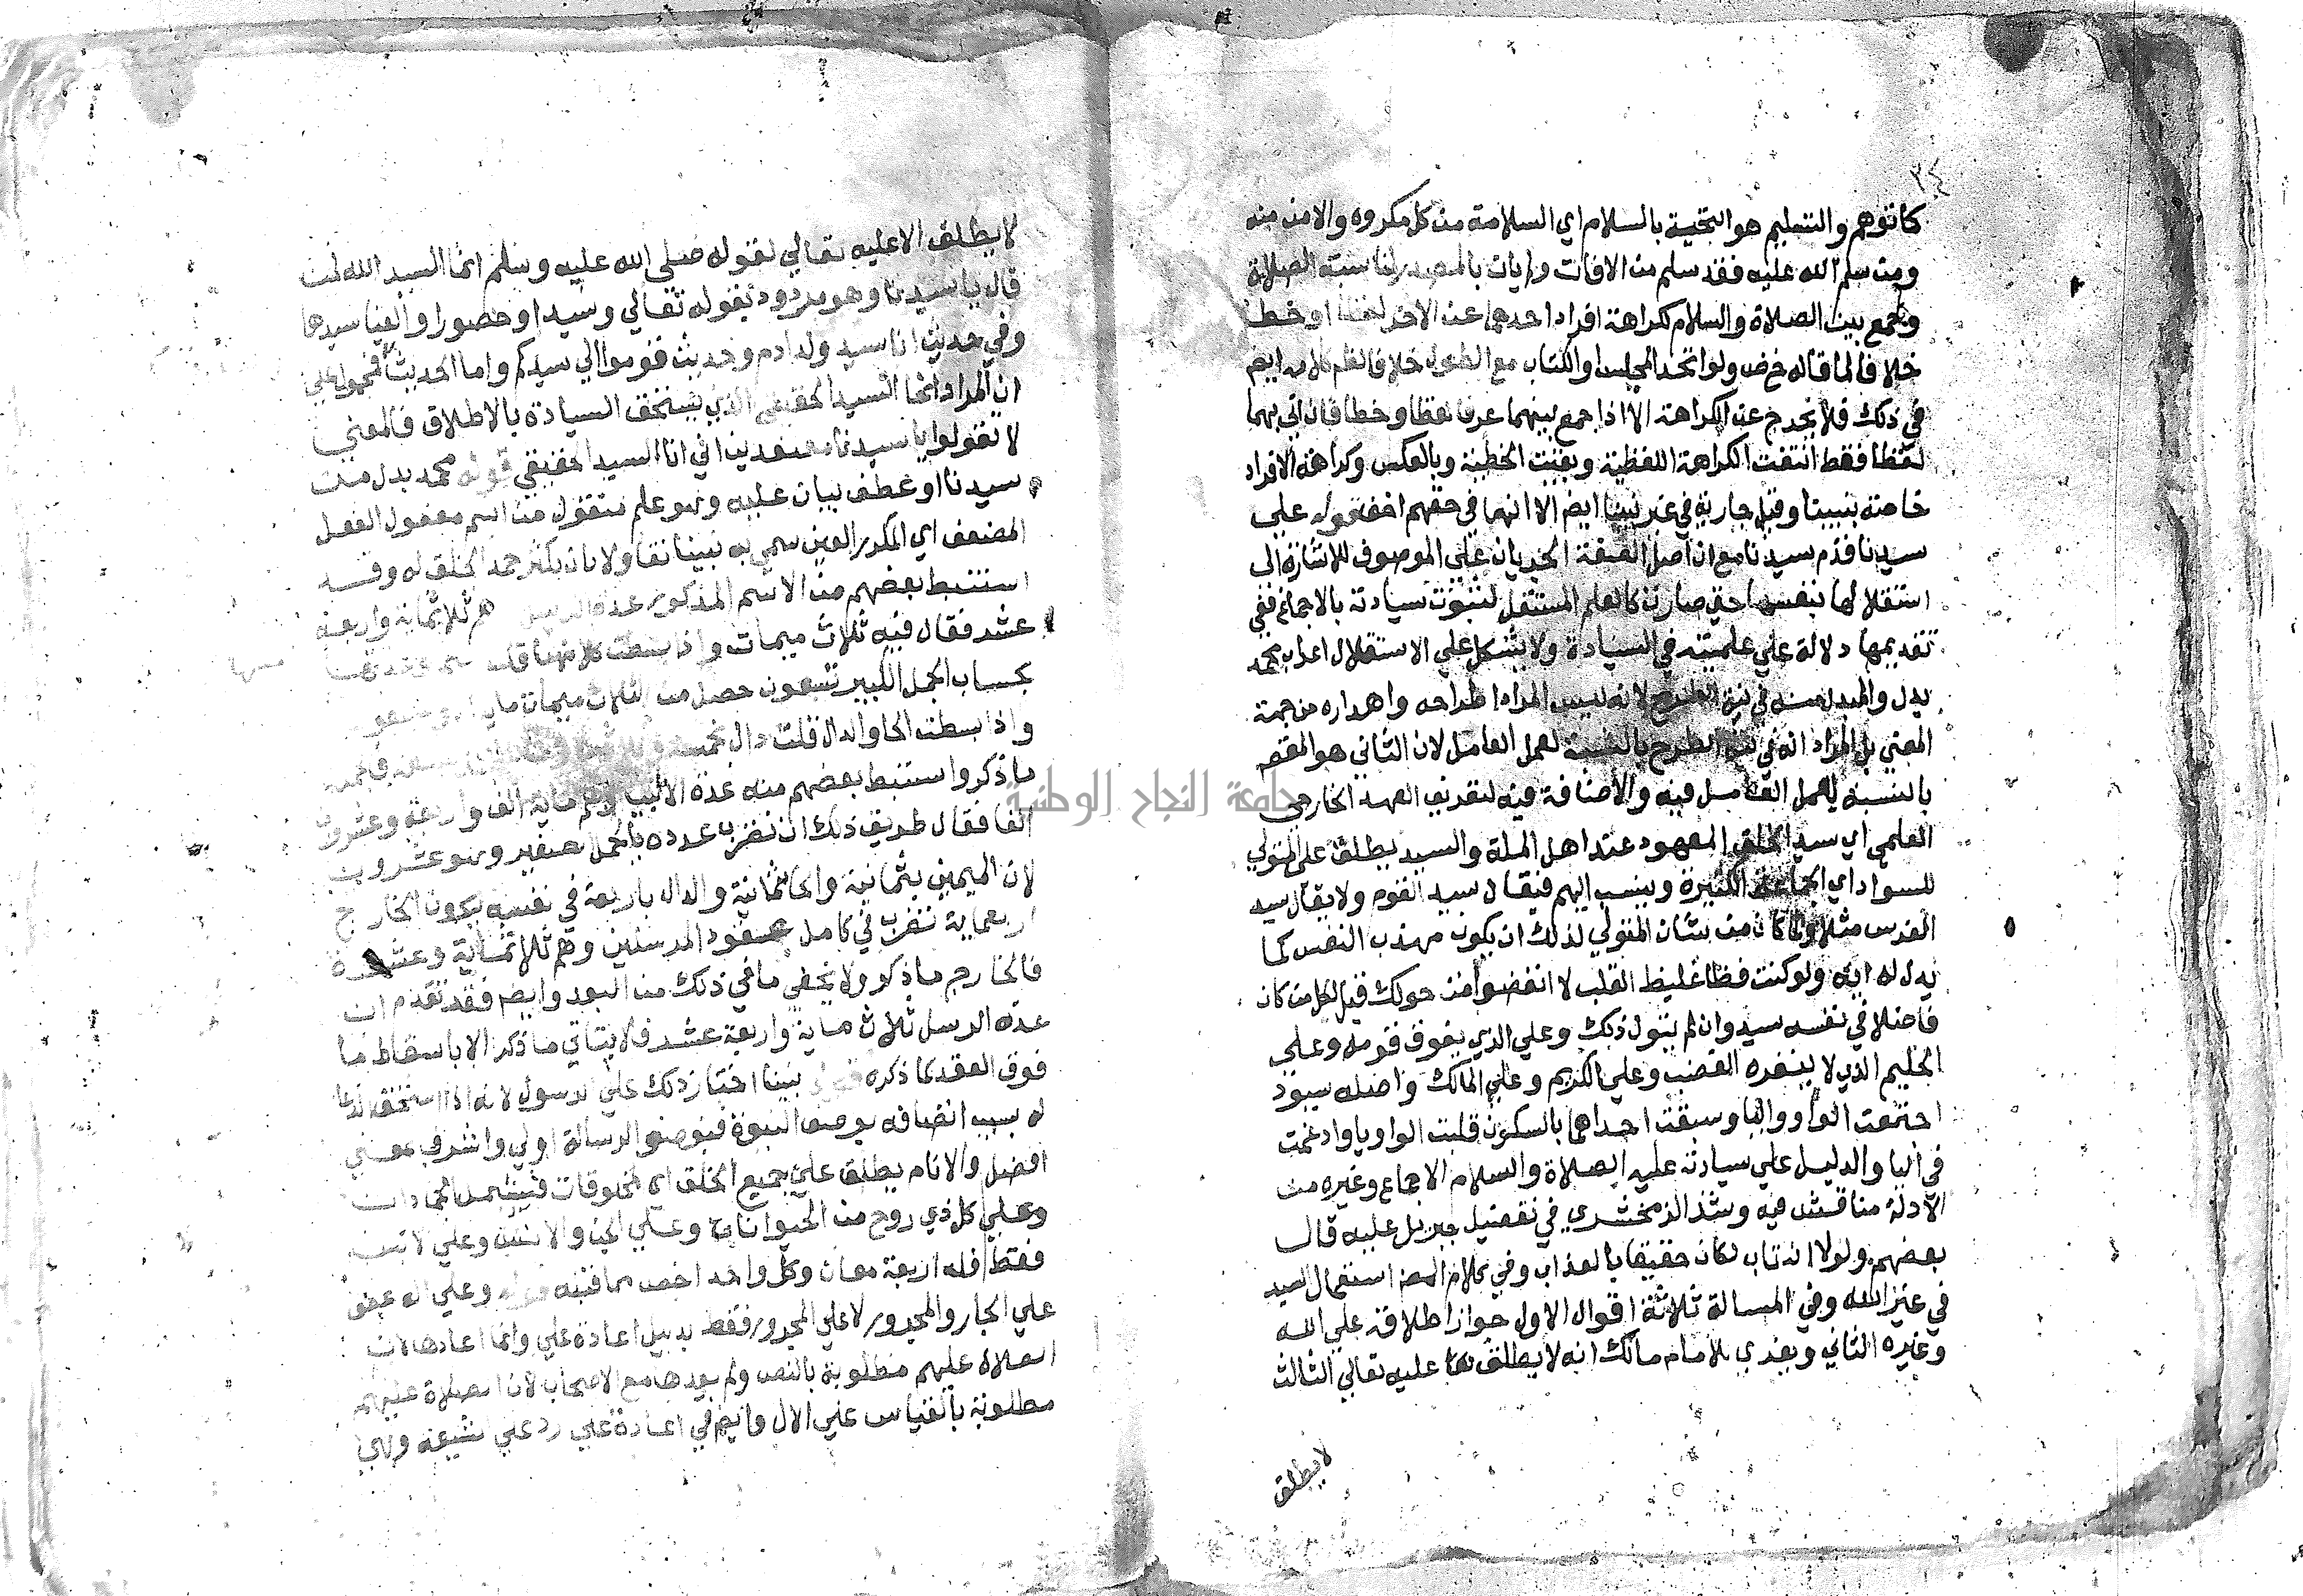 ٢٤
كما توهم والتسليم هو التحية بالسلام اي السلامة من كل مكروه والامن منه
ومن سلم الله عليه فقد سلم من الافات واتيان بالمصدر لمناسبة الصلاة
وجمع بين الصلاة والسلام لكراهة افراد احدهما عن الاخر لفظا او خطا
خلافا لما قاله ولو اتحد المجلس او الكتاب مع الطول خلافا
في ذلك فلا يخرج عن الكراهة الا اذا جمع بينهما عرفا لفظا وخطا فان اتي بهما
لفظا فقط انتفت الكراهة اللفظية وبقيت الخطية وبالعكس وكراهة الافراد
خاصة بنبينا وقيل جارية في غير نبينا ايضا الا انها في حقهم اخف قوله علي
سيدنا قدم سيدنا مع ان اصل الصفة الجريان علي الموصوف للاشارة الى
استقلالها بنفسها حتي صارت كالعلم المستقل لثبوت سيادته بالاجماع ففي
تقديمها دلالة علي علميته في السيادة ولا يشكل علي الاستقلال اعراب محمد
بدل والمبدل منه في نية الطرح لانه ليس المراد اطراحه واهداره من جهة
المعني بل المراد انه في نية الطرح بالنسبة لعمل العامل لان الثاني هو المقصود
بالنسبة لعمل العامل فيه والاضافة فيه لتعريف العهد الخارجي
العلمي اي سيد الخلق المعهود عند اهل الملة والسيد يطلق علي المتولي
للسواد اي الجماعة الكثيرة وينسب اليهم فيقال سيد القوم ولا يقال سيد
الفرس مثلا ولما كان من شان المتولي لذلك ان يكون مهذب النفس كما
يدل له اية ولو كنت فظا غليظ القلب لا انفضوا من حولك قيل لكل من كان
فاضلا في نفسه سيد وان لم يتول ذلك وعلي الذي يفوق قومه وعلي
الحليم الذي لا يستفزه الغضب وعلي الكريم وعلي المالك واصله سيود
اجتمعت الواو واليا وسبقت احداهما بالسكون قلبت الواو يا وادغمت
في اليا والدليل علي سيادته عليه الصلاة والسلام الاجماع وغيره من
الادلة مناقش فيه وشذ الزمخشري في تفضيل جبريل عليه قال
بعضهم ولولا انه تاب لكان حقيقا بالعذاب وفي كلام المصنف استعمال السيد
في غير الله وفي المسالة ثلاثة اقوال الاول جواز اطلاقه علي الله
وغيره الثاني ويعزي للامام مالك انه لا يطلق عليه تعالي الثالث
لا يطلق
لا يطلق الا عليه تعالي لقوله صلى الله عليه وسلم انما السيد الله لمن
قال يا سيدنا وهو مردود بقوله تعالي وسيدا وحصورا والفيا سيدها
وفي حديث انا سيد ولد ادم وحديث قوموا الي سيدكم واما الحديث فمحمول علي
ان المراد انما السيد الحقيقي الذي يستحق السيادة بالاطلاق فالمعني
لا تقولوا يا سيدنا معتقدين اني انا السيد الحقيقي قوله محمد بدل من
سيدنا او عطف بيان عليه وهو علم منقول من اسم مفعول الفعل
المضعف اي المكرر العين سمي به نبينا تفاولا بان يكثر حمد الخلق له وقد
استنبط بعضهم من الاسم المذكور عدة الرسل هم ثلاثماية واربعة
عشر فقال فيه ثلاث ميمات واذا بسطت كلا منها قلت ميم
بحساب الجمل الكبير تسعون حصل من الثلاث ميمات مايتان وسبعون
واذا بسطت الحا والدال قلت دال بخمسة وثلاثين
ما ذكر واستنبط بعضهم منه عدة الانبيا وهم ماية الف واربعة وعشرون
الفا فقال طريق ذلك ان تضرب عدده بالجمل الصغير وهو عشرون
لان الميمين بثمانية والحا بثمانية والدال باربعة في نفسه يكون الخارج
اربعماية تضرب في كامل عقود المرسلين وهم ثلاثماية وعشرة
فالخارج ما ذكر ولا يخفي ما في ذلك من البعد وايضا فقد تقدم ان
عدة الرسل ثلاث ماية واربعة عشر فلا يتاتي ما ذكر الا باسقاط ما
فوق العقد كما ذكره نبينا اختار ذلك علي الرسول لانه اذا استحق
له بسبب اتصافه بوصف النبوة فبوصف الرسالة اولي واشرف بمعني
افضل والانام يطلق علي جميع الخلق اي المخلوقات فيشمل الجمادات
وعلي كل ذي روح من الحيوانات وعلي الجن والانس وعلي الانس
فقط فله اربعة معان وكل واحد اخص مما قبله قوله وعلي اله عطف
علي الجار والمجرور لا علي المجرور فقط بدليل اعادة علي وانما اعادها لان
الصلاة عليهم مطلوبة بالنص ولم يعدها مع الاصحاب لان الصلاة عليهم
مطلوبة بالقياس علي الال وايضا في اعادة علي رد علي الشيعة
جامعة النجاح الوطنية